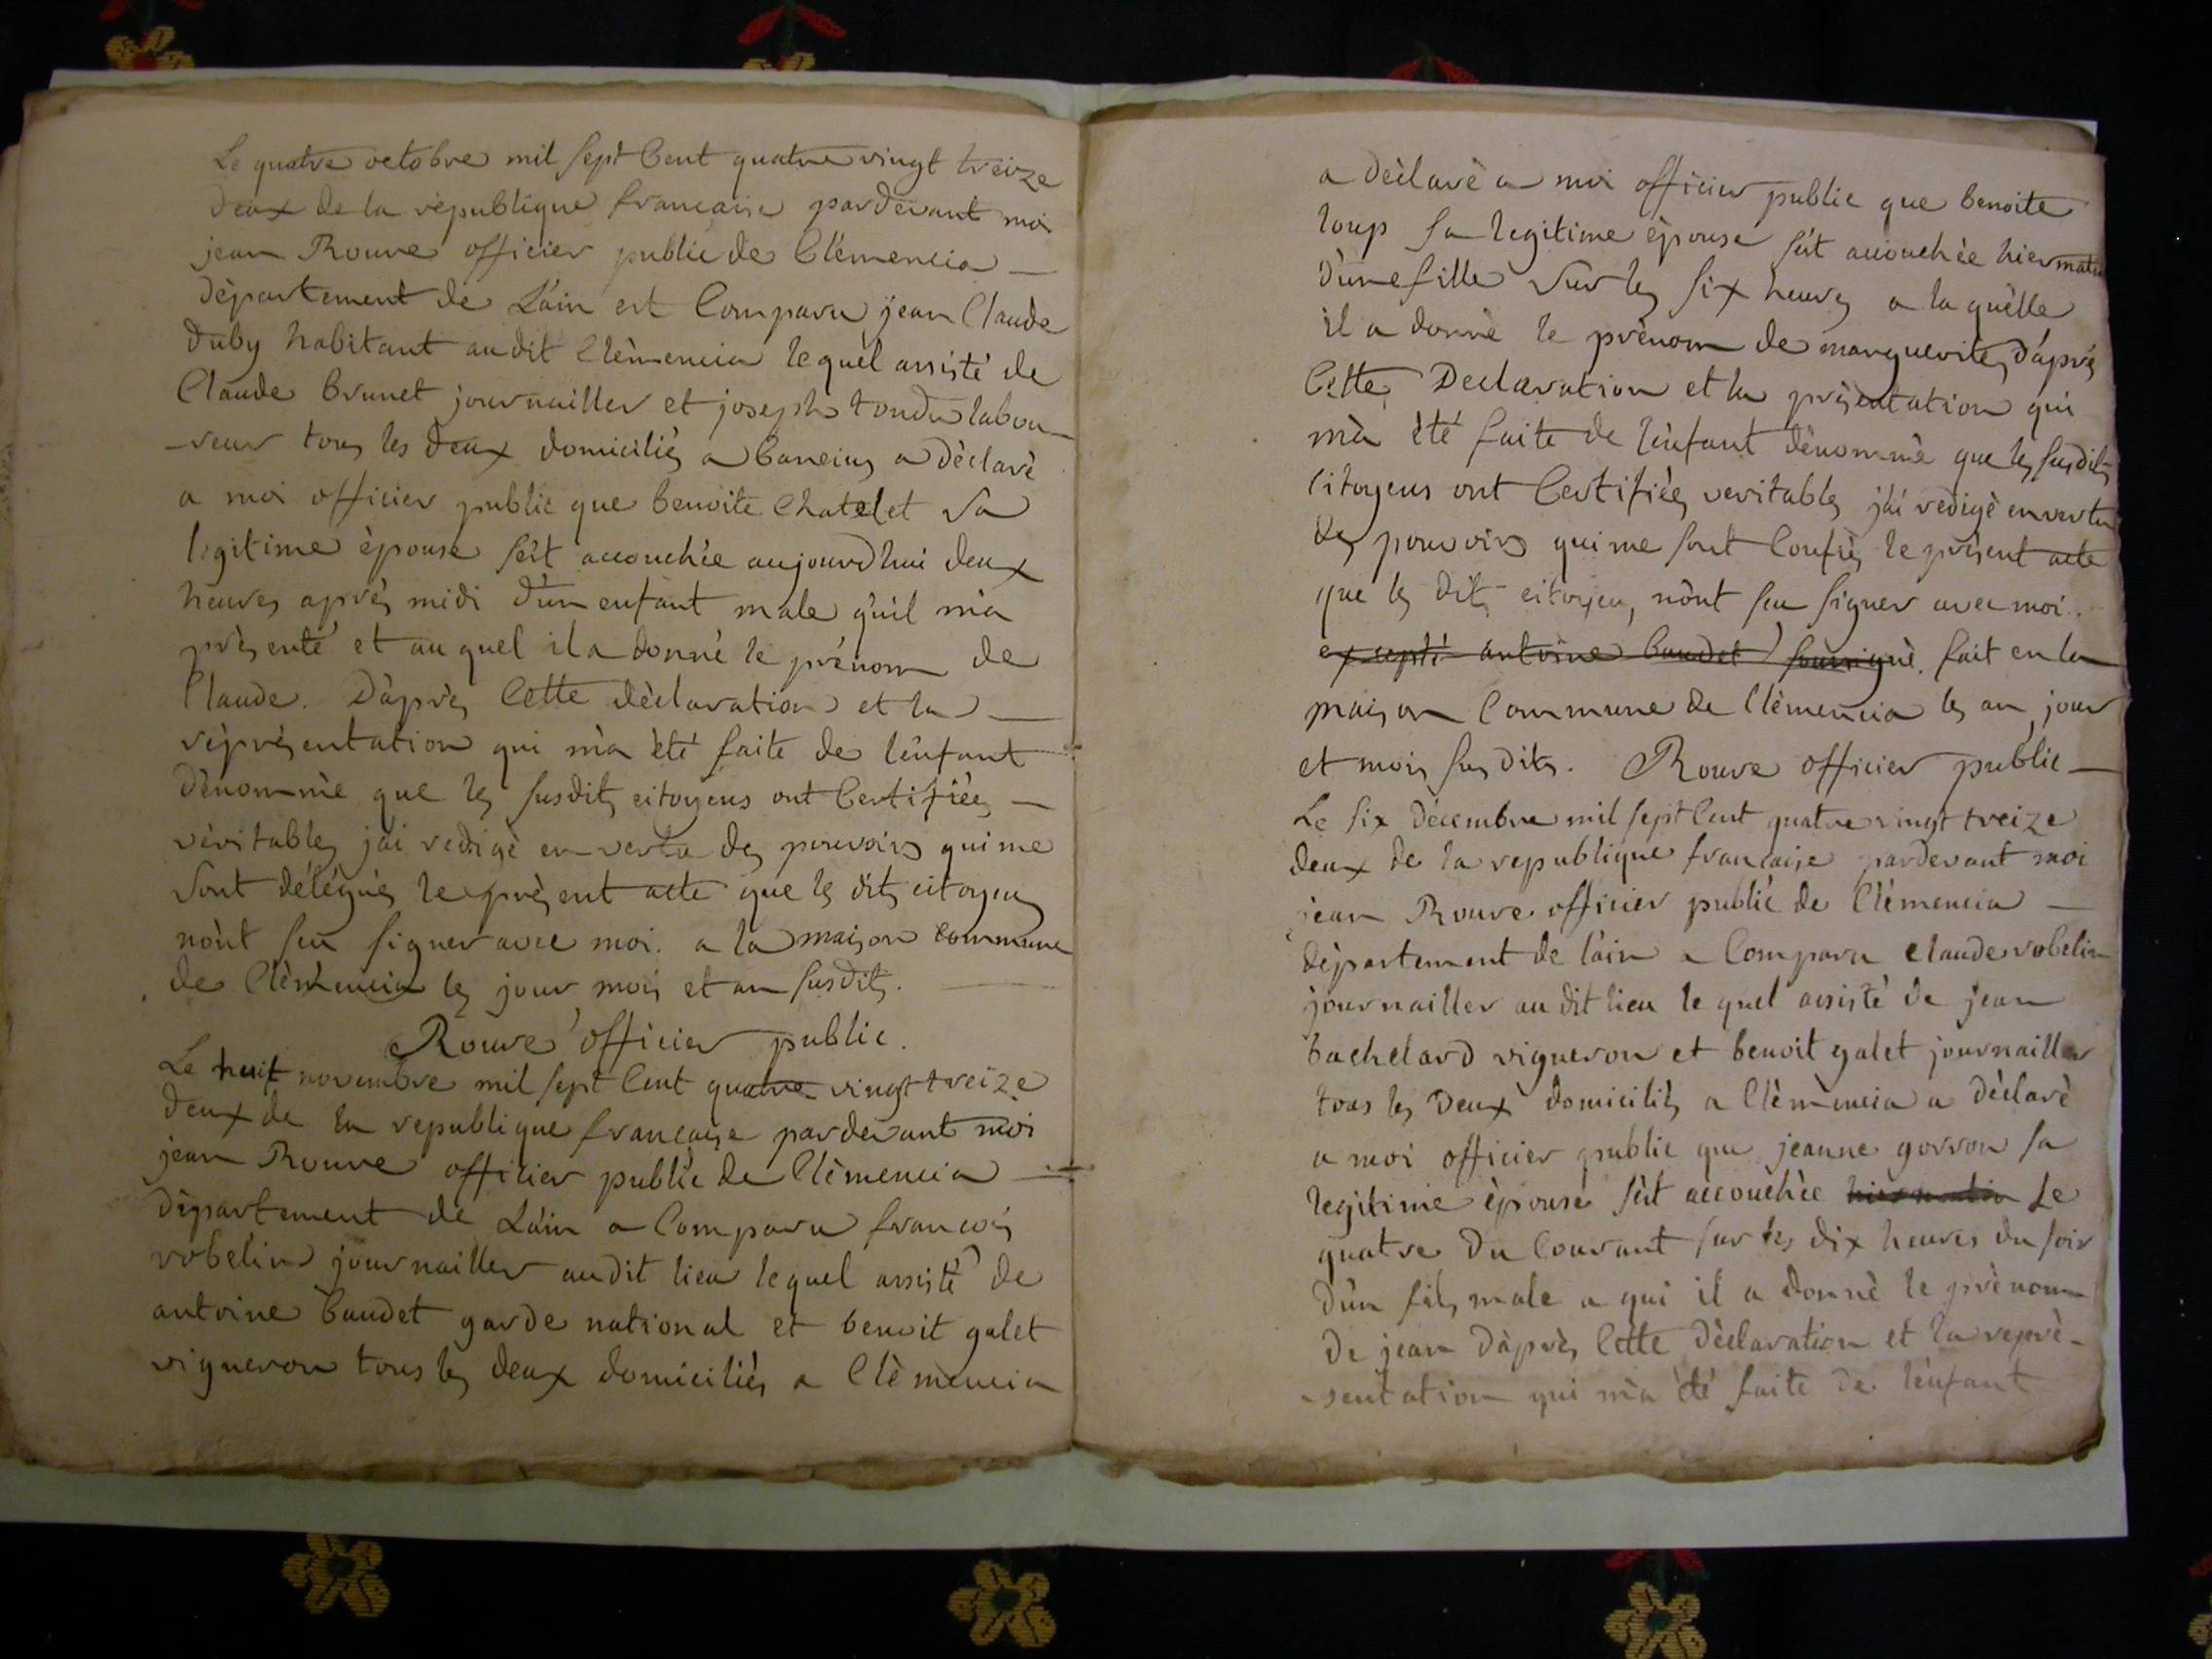 Le quatre octobre mil sept Cent quatre vingt treize
deux de la république francaise pardevant moi
jean Rouve officier public de Clémencia —
département de L'ain est Comparu jean Claude
duby habitant audit Clèmencia lequel assisté de
Claude brunet journailler et joseph tondu labou-
-reur tous les deux domiciliés a Caneius a dèclarè
a moi officier public que benoite Chatelet sa
legitime èpouse s'èst accouchée aujourd'hui deux
heures aprés midi d'un enfant male qu'il m'a
prèsenté et auquel il a donné le prénom de
Claude. D'après Cette dèclaration et la —
répresentation qui m'a èté faite de l'enfant
dènommè que les susdits citoyens ont Certifiées —
véritables j'ai redigè en vertu des pouvoirs qui me
sont délégués le prèsent acte que les dits citoyens
n'ont seu signer avec moi. a la maison commune
de Clèmencia les jour mois et an susdits.
Rouve officier public.
Le huit novembre mil sept Cent quatre vingt treize
deux de la republique francaise pardevant moi
jean Rouve officier public de Clèmencia —
département de L'ain a Comparu francois
robelin journailler audit lieu lequel assisté de
antoine baudet garde national et benoit galet
vigneron tous les deux domiciliés a Clèmencia
a dèclarè a moi officier public que benoite
loup sa legitime èpouse s'èt accouchèe hier matin
d'une fille sur les six heures a laquèlle
il a donnè le prènom de marguerite, d'aprés
Cette Declaration et la présentation qui
m'a èté faite de l'enfant dènommè que les susdits
Citoyens ont Certifièes veritables j'ai redigè en vertu
des pouvoirs qui me sont Confiés le prèsent acte
que les dits citoyens, n'ont seu signer avec moi.
excepté antoine baudet soussignè. fait en la
maison Commune de Clèmencia les an jour
et mois susdits. Rouve officier public —
Le six décembre mil sept Cent quatre vingt treize
deux de la republique francaise pardevant moi
jean Rouve officier public de Clémencia —
dèpartement de l'ain a Comparu claude robelin
journailler audit lieu lequel assisté de jean
bachelard vigneron et benoit galet journailler
tous les deux domiciliés a Clèmencia a dèclarè
a moi officier public que jeanne gorron sa
legitime èpouse s'èt accouchèe hier matin Le
quatre du Courant sur les dix heures du soir
d'un fils male a qui il a donnè le prènom
de jean d'après Cette Dèclaration et la reprè-
-sentation qui m'a été faite de l'enfant